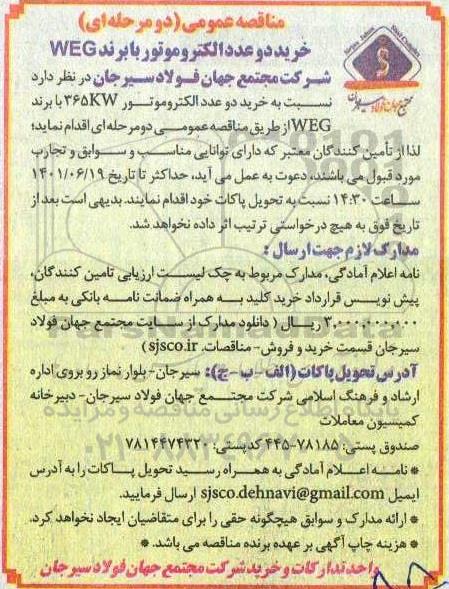 مناقصه عمومی (دو مرحله ای)
خرید دو عدد الکتروموتور با برند WEG
شرکت مجتمع جهان فولاد سیرجان در نظر دارد
نسبت به خرید دو عدد الکتروموتور ۳۶۵KW با برند
WEG از طریق مناقصه عمومی دو مرحله ای اقدام نماید؛
لذا از تأمین کنندگان معتبر که دارای توانایی مناسب و سوابق و تجارب
مورد قبول می باشند، دعوت به عمل می آید، حداکثر تا تاریخ ۱۴۰۱/۰۶/۱۹
ساعت ۱۴:۳۰ نسبت به تحویل پاکات خود اقدام نمایند. بدیهی است بعد از
تاریخ فوق به هیچ درخواستی ترتیب اثر داده نخواهد شد.
مدارک لازم جهت ارسال :
نامه اعلام آمادگی، مدارک مربوط به چک لیست ارزیابی تامین کنندگان،
پیش نویس قرارداد خرید کلید به همراه ضمانت نامه بانکی به مبلغ
۳.۰۰۰.۰۰۰.۰۰۰ ریال ( دانلود مدارک از سایت مجتمع جهان فولاد
سیرجان قسمت خرید و فروش- مناقصات. sjsco.ir)
آدرس تحویل پاکات (الف - ب - ج): سیرجان- بلوار نماز رو بروی اداره
ارشاد و فرهنگ اسلامی شرکت مجتمع جهان فولاد سیرجان- دبیرخانه
کمیسیون معاملات
صندوق پستی: ۷۸۱۸۵-۴۴۵ کدپستی: ۷۸۱۴۴۷۴۳۳۰
* نامه اعلام آمادگی به همراه رسید تحویل پاکات را به آدرس
ایمیل sjsco.dehnavi@gmail.com ارسال فرمایید.
* ارائه مدارک و سوابق هیچگونه حقی را برای متقاضیان ایجاد نخواهد کرد.
* هزینه چاپ آگهی بر عهده برنده مناقصه می باشد. *
واحد تدارکات و خرید شرکت مجتمع جهان فولاد سیرجان